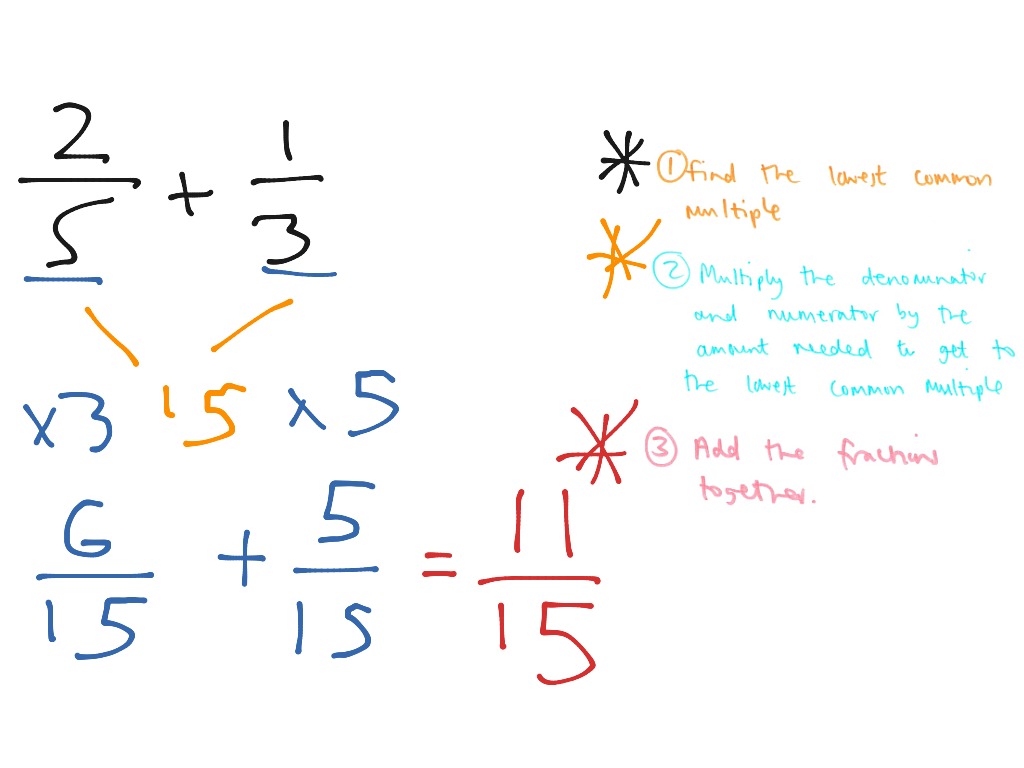 2/5 + 1/3
x3 15 x5
6/15 + 5/15 = 11/15
① find the lowest common
multiple
② Multiply the denominator
and numerator by the
amount needed to get to
the lowest common multiple
③ Add the fractions
together.